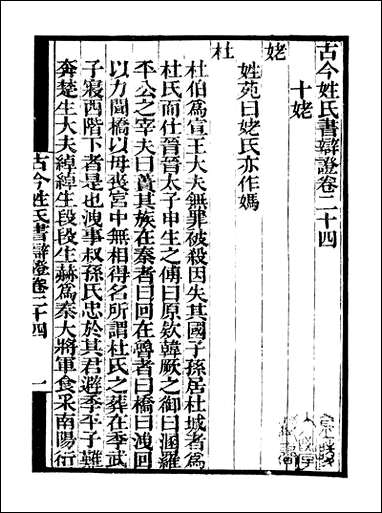 古今姓氏書辯證卷二十四
十姥
姥
姓苑曰姥氏亦作媽
杜
杜伯爲宣王大夫無罪被殺因失其國子孫居杜城者爲
杜氏而仕晉晉太子申生之傅曰原欵韓厥之御曰溷羅
平公之宰夫曰蕢其族在秦者曰回在魯者曰橋曰洩回
以力聞橋以母喪宮中無相得名所謂杜氏之葬在季武
子寢西階下者是也洩事叔孫氏忠於其君避季平子難
奔楚生大夫綽綽生段段生赫爲秦大將軍食采南陽衍
古今姓氏書辯證卷二十四 一